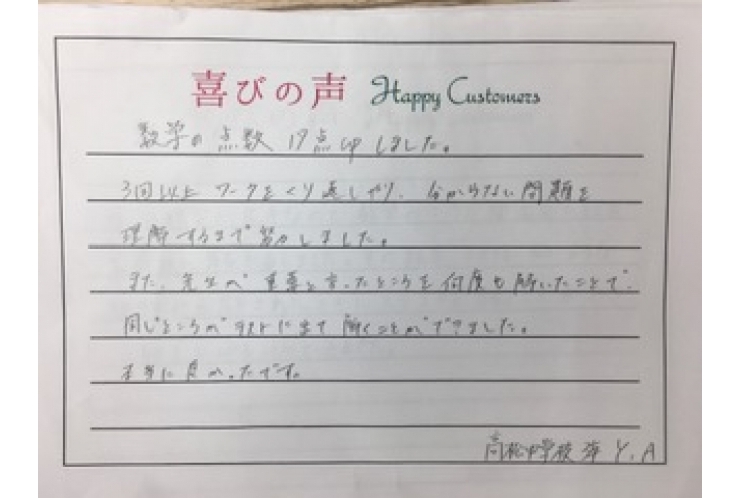 喜びの声 Happy Customers
数学の点数 17点upしました。
3回以上ワークをくり返しやり、分からない問題を
理解するまで努力しました。
また、先生が重要と言ったところを何度も解いたことで、
同じところがテストに出て解くことができました。
本当に良かったです。
高松中学校 Y.A